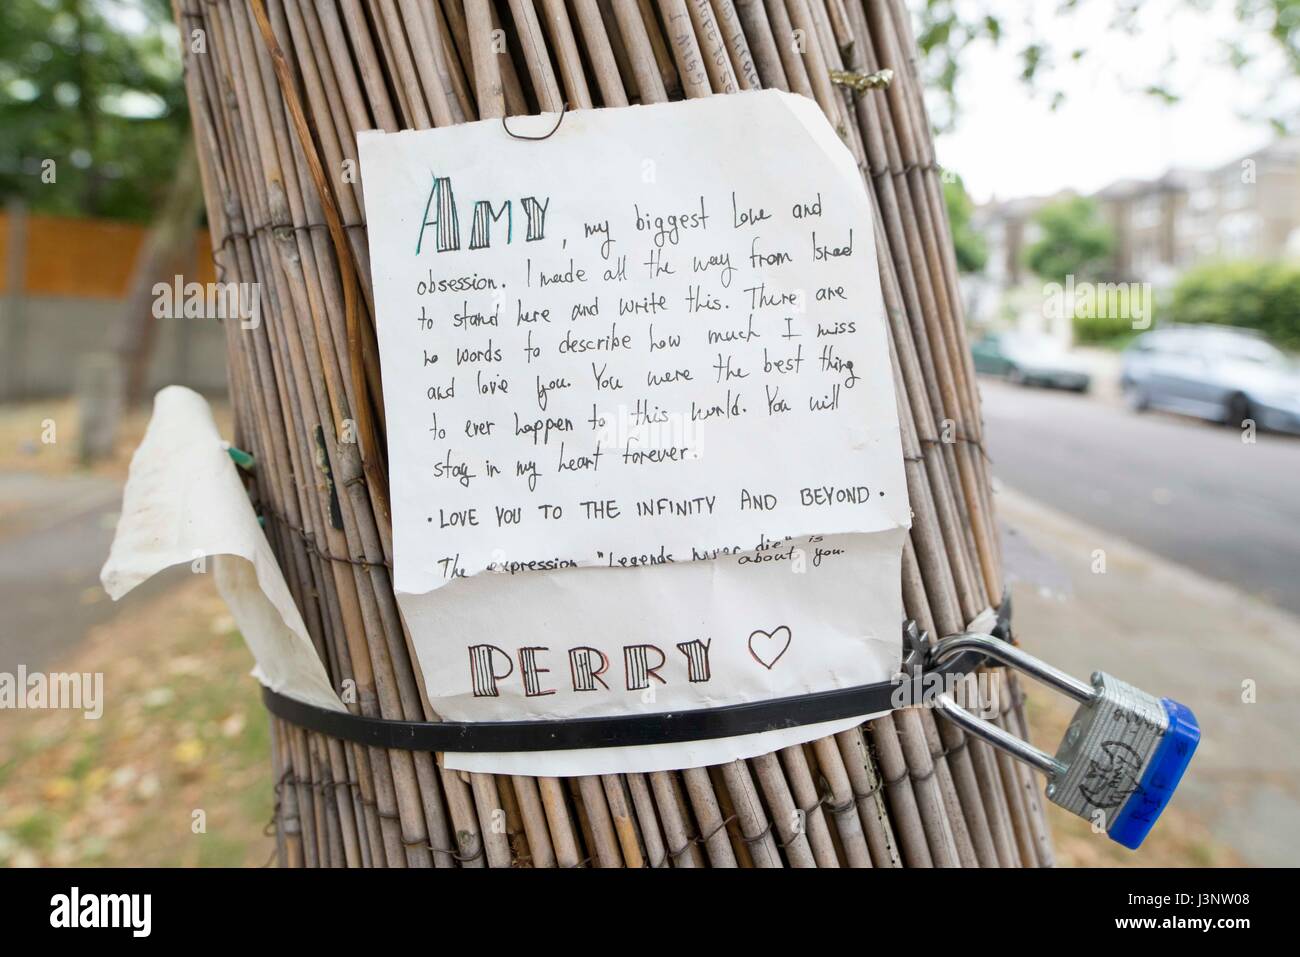 I MISS
AMY, my biggest love and
obsession. I made all the way from Israel
to stand here and write this. There are
no words to describe how much I miss
and love you. You were the best thing
to ever happen to this world. You will
stay in my heart forever.
• LOVE YOU TO THE INFINITY AND BEYOND •
The expression "Legends never die" is
about you.
PERRY ♡
RIP
alamy
Image ID: J3NW08
www.alamy.com